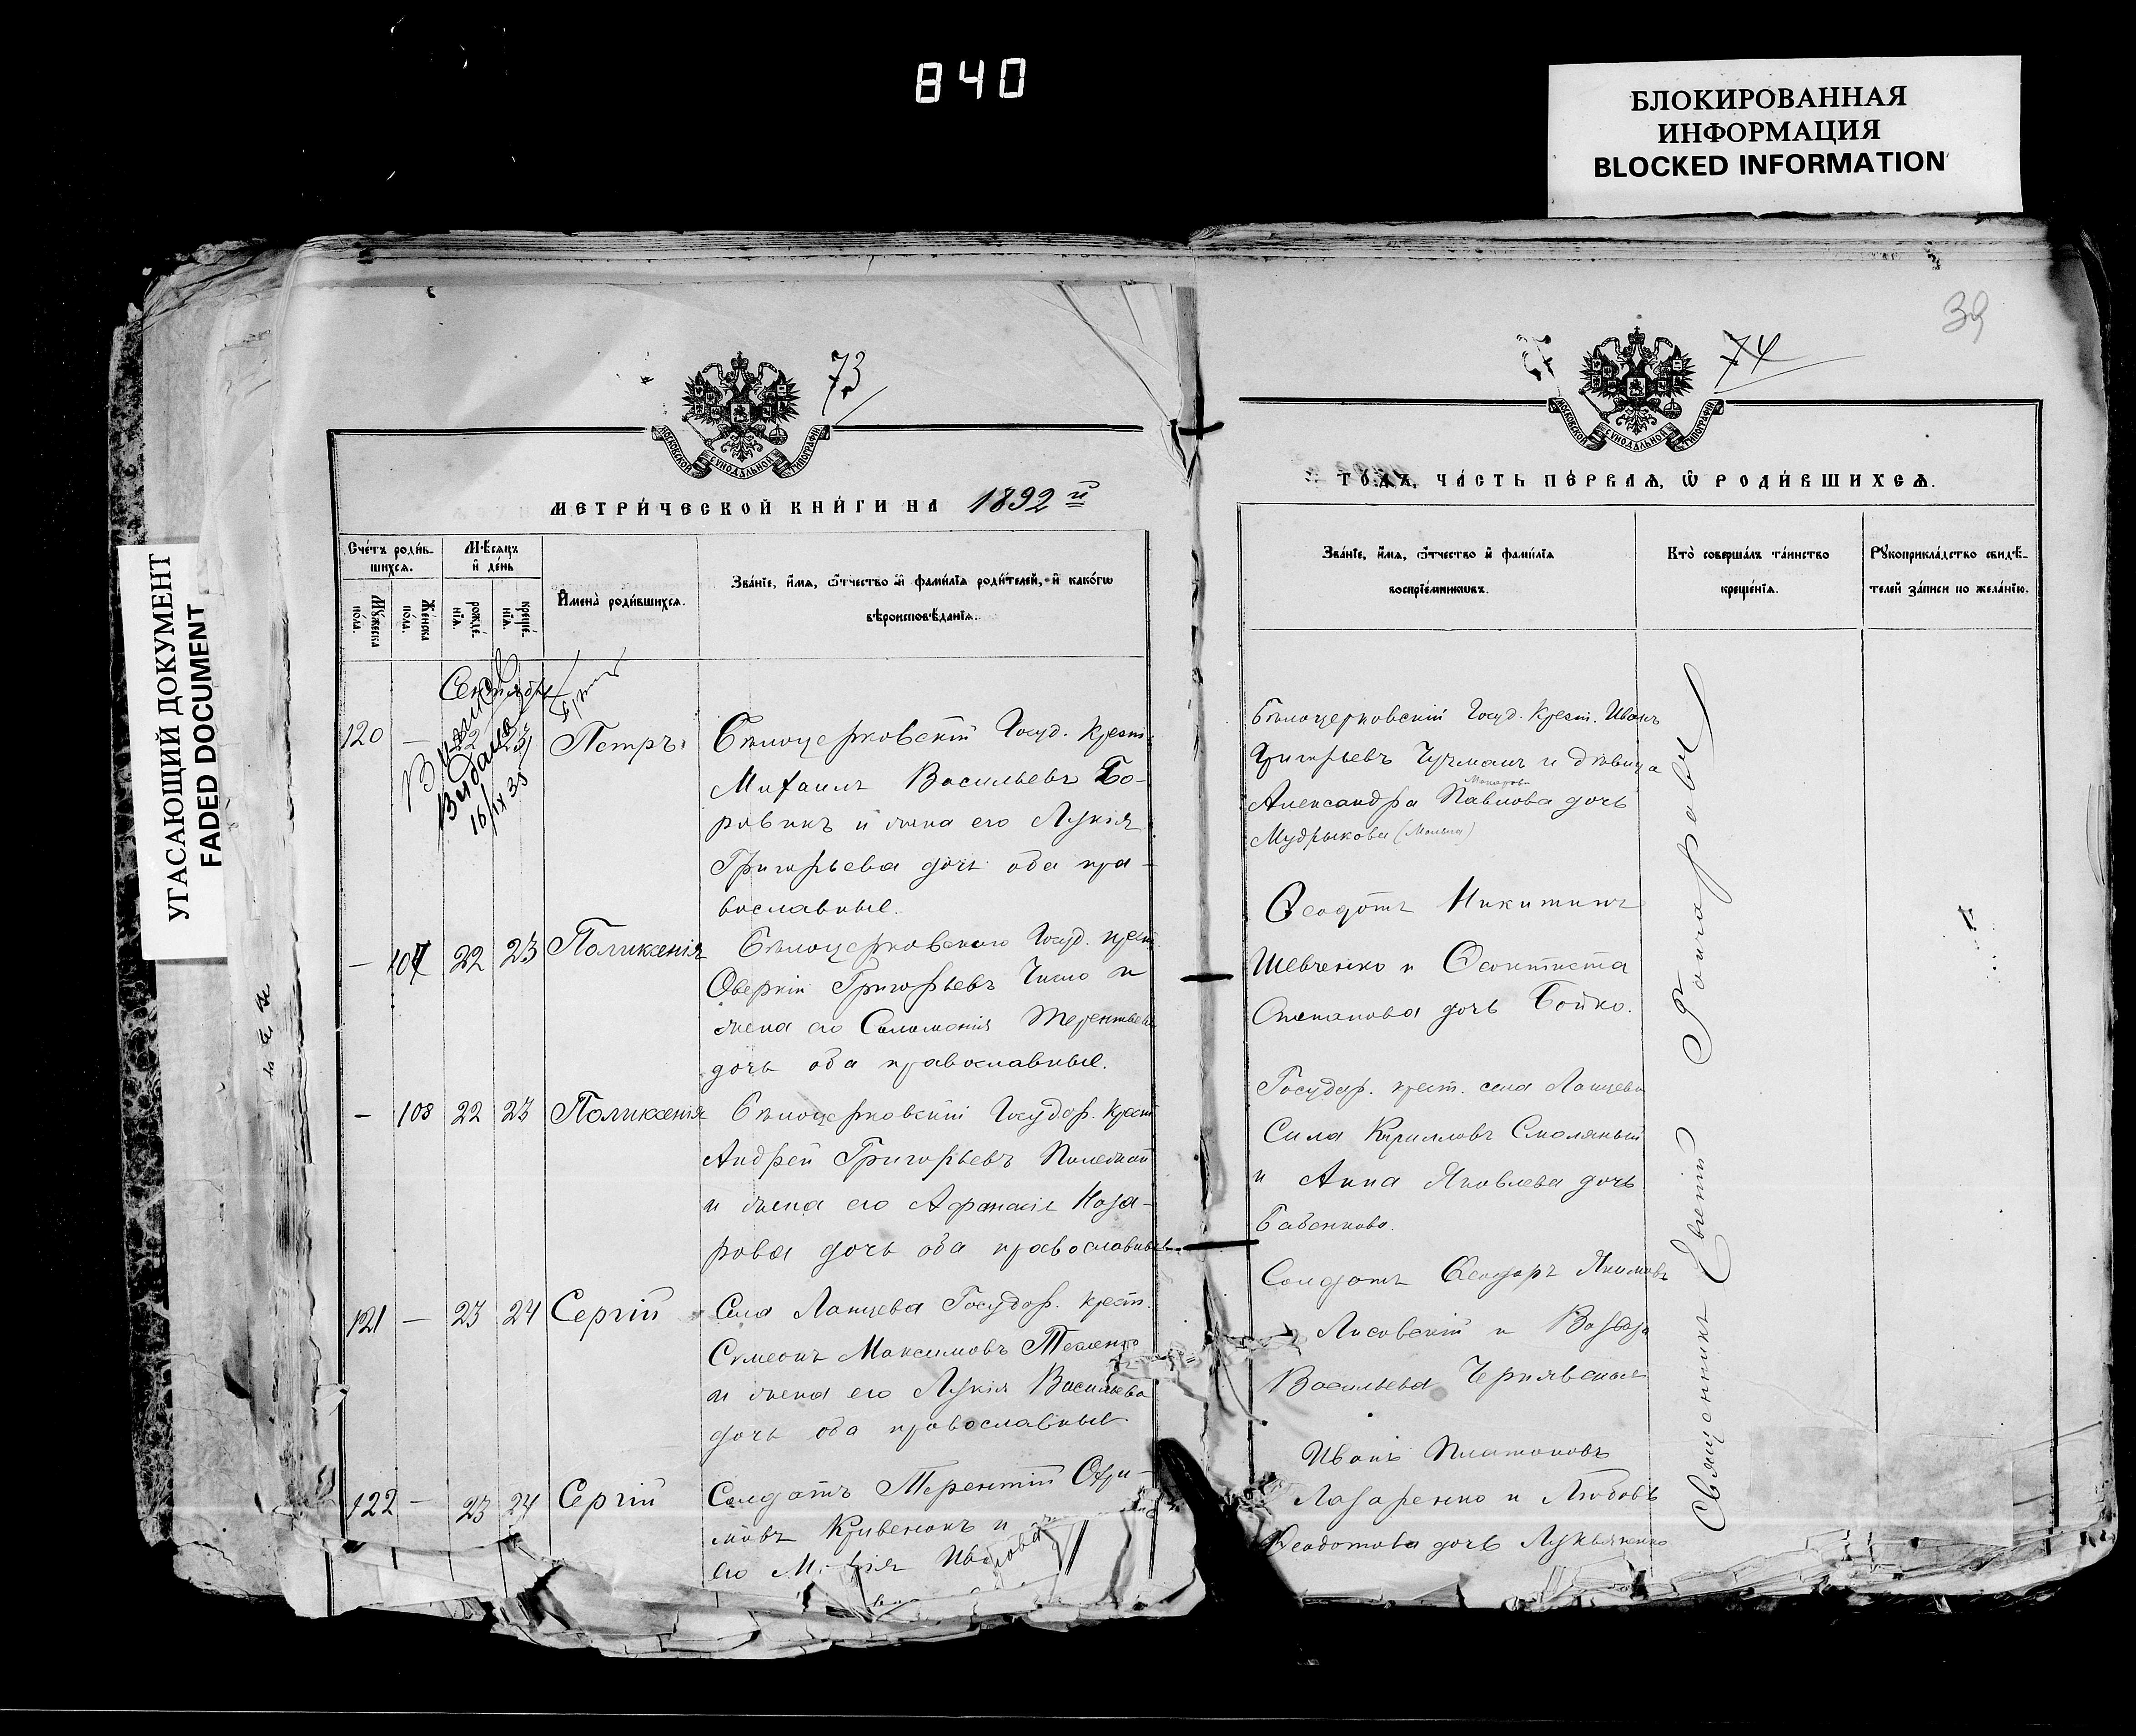 840
БЛОКИРОВАННАЯ
ИНФОРМАЦИЯ
BLOCKED INFORMATION
УГАСАЮЩИЙ ДОКУМЕНТ
FADED DOCUMENT
73
МОСКОВСКОЙ СѴНОДАЛЬНОЙ ТИПОГРАФІИ
МЕТРИ́ЧЕСКОЙ КНИ́ГИ НА 1892 й
Сче́тъ роди́в-
шихсѧ.
Мѣ́сѧцъ
и҆ де́нь
Мꙋ́жеска
по́ла.
Же́нска
по́ла.
рожде́-
нїѧ.
креще́-
нїѧ.
И҆мена̀ роди́вшихсѧ.
Зва́нїе, и҆́мѧ, ѻ҆́тчество и҆ фами́лїѧ роди́телей, и҆ како́гѡ
вѣроисповѣ́данїѧ.
Сентябрь
Выдана
16/IX 35
120 — 22 23 Петръ
Бѣлоцерковскій Госуд. крест.
Михаилъ Васильевъ Бо-
ровикъ и жена его Лукія
Григорьева дочь оба пра-
вославные.
— 107 22 23 Поликсенія
Бѣлоцерковскаго Госуд. крест.
Оверкій Григорьевъ и
жена его Саломонія Терентьева
дочь оба православные.
— 108 22 23 Поликсенія
Бѣлоцерковскій Государ. крест.
Андрей Григорьевъ
и жена его Афанасія Наза-
рова дочь оба православные
121 — 23 24 Сергій
Села Ланцева Государ. крест.
Симеонъ Максимовъ
и жена его Лукія Васильева
дочь оба православные.
122 — 23 24 Сергій
Солдатъ Терентій
Кривенокъ и
его
74
39
МОСКОВСКОЙ СѴНОДАЛЬНОЙ ТИПОГРАФІИ
ГО́ДЪ, ЧА́СТЬ ПЕ́РВАѦ, Ѽ РОДИ́ВШИХСѦ.
Зва́нїе, и҆́мѧ, ѻ҆́тчество и҆ фами́лїѧ
воспрїе́мникѡвъ.
Кто̀ соверша́лъ та́инство
креще́нїѧ.
Рꙋкоприкла́дство свидѣ́-
телей за́писи по жела́нїю.
Бѣлоцерковскій Госуд. крест. Иванъ
Григорьевъ Чучманъ и дѣвица
Александра Павлова дочь
Мудрыкова
Ѳеодотъ Никитинъ
Шевченко и Ѳеоктиста
Степанова дочь Бойко.
Государ. крест. села Ланцева
Сила Кирилловъ Смоляный
и Анна Яковлева дочь
Бабенкова.
Солдатъ Ѳеодоръ Якимовъ
Лисовскій и Варвара
Васильева Чернявская
Иванъ Платоновъ
Лазаренко и Любовь
Ѳеодотова дочь Лукьяненко
Священникъ Евгеній Гончаровъ